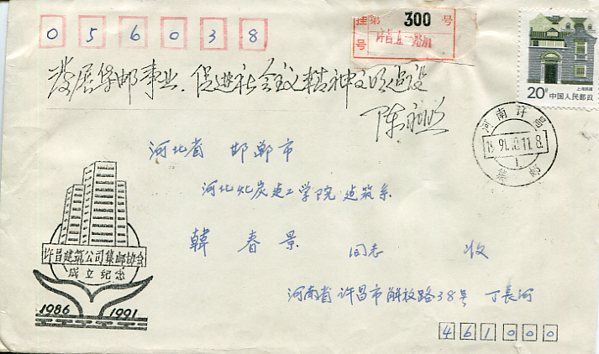 056038
挂 第 300 号
号 许昌五一路
发展集邮事业,促进社会主义精神文明建设
上海民居
20分 中国人民邮政
河南许昌
河北省 邯郸市
河北煤炭建工学院 建筑系
韩春景 同志 收
许昌建筑公司集邮协会
成立纪念
1986 1991
河南省许昌市解放路38号 丁长河
461000